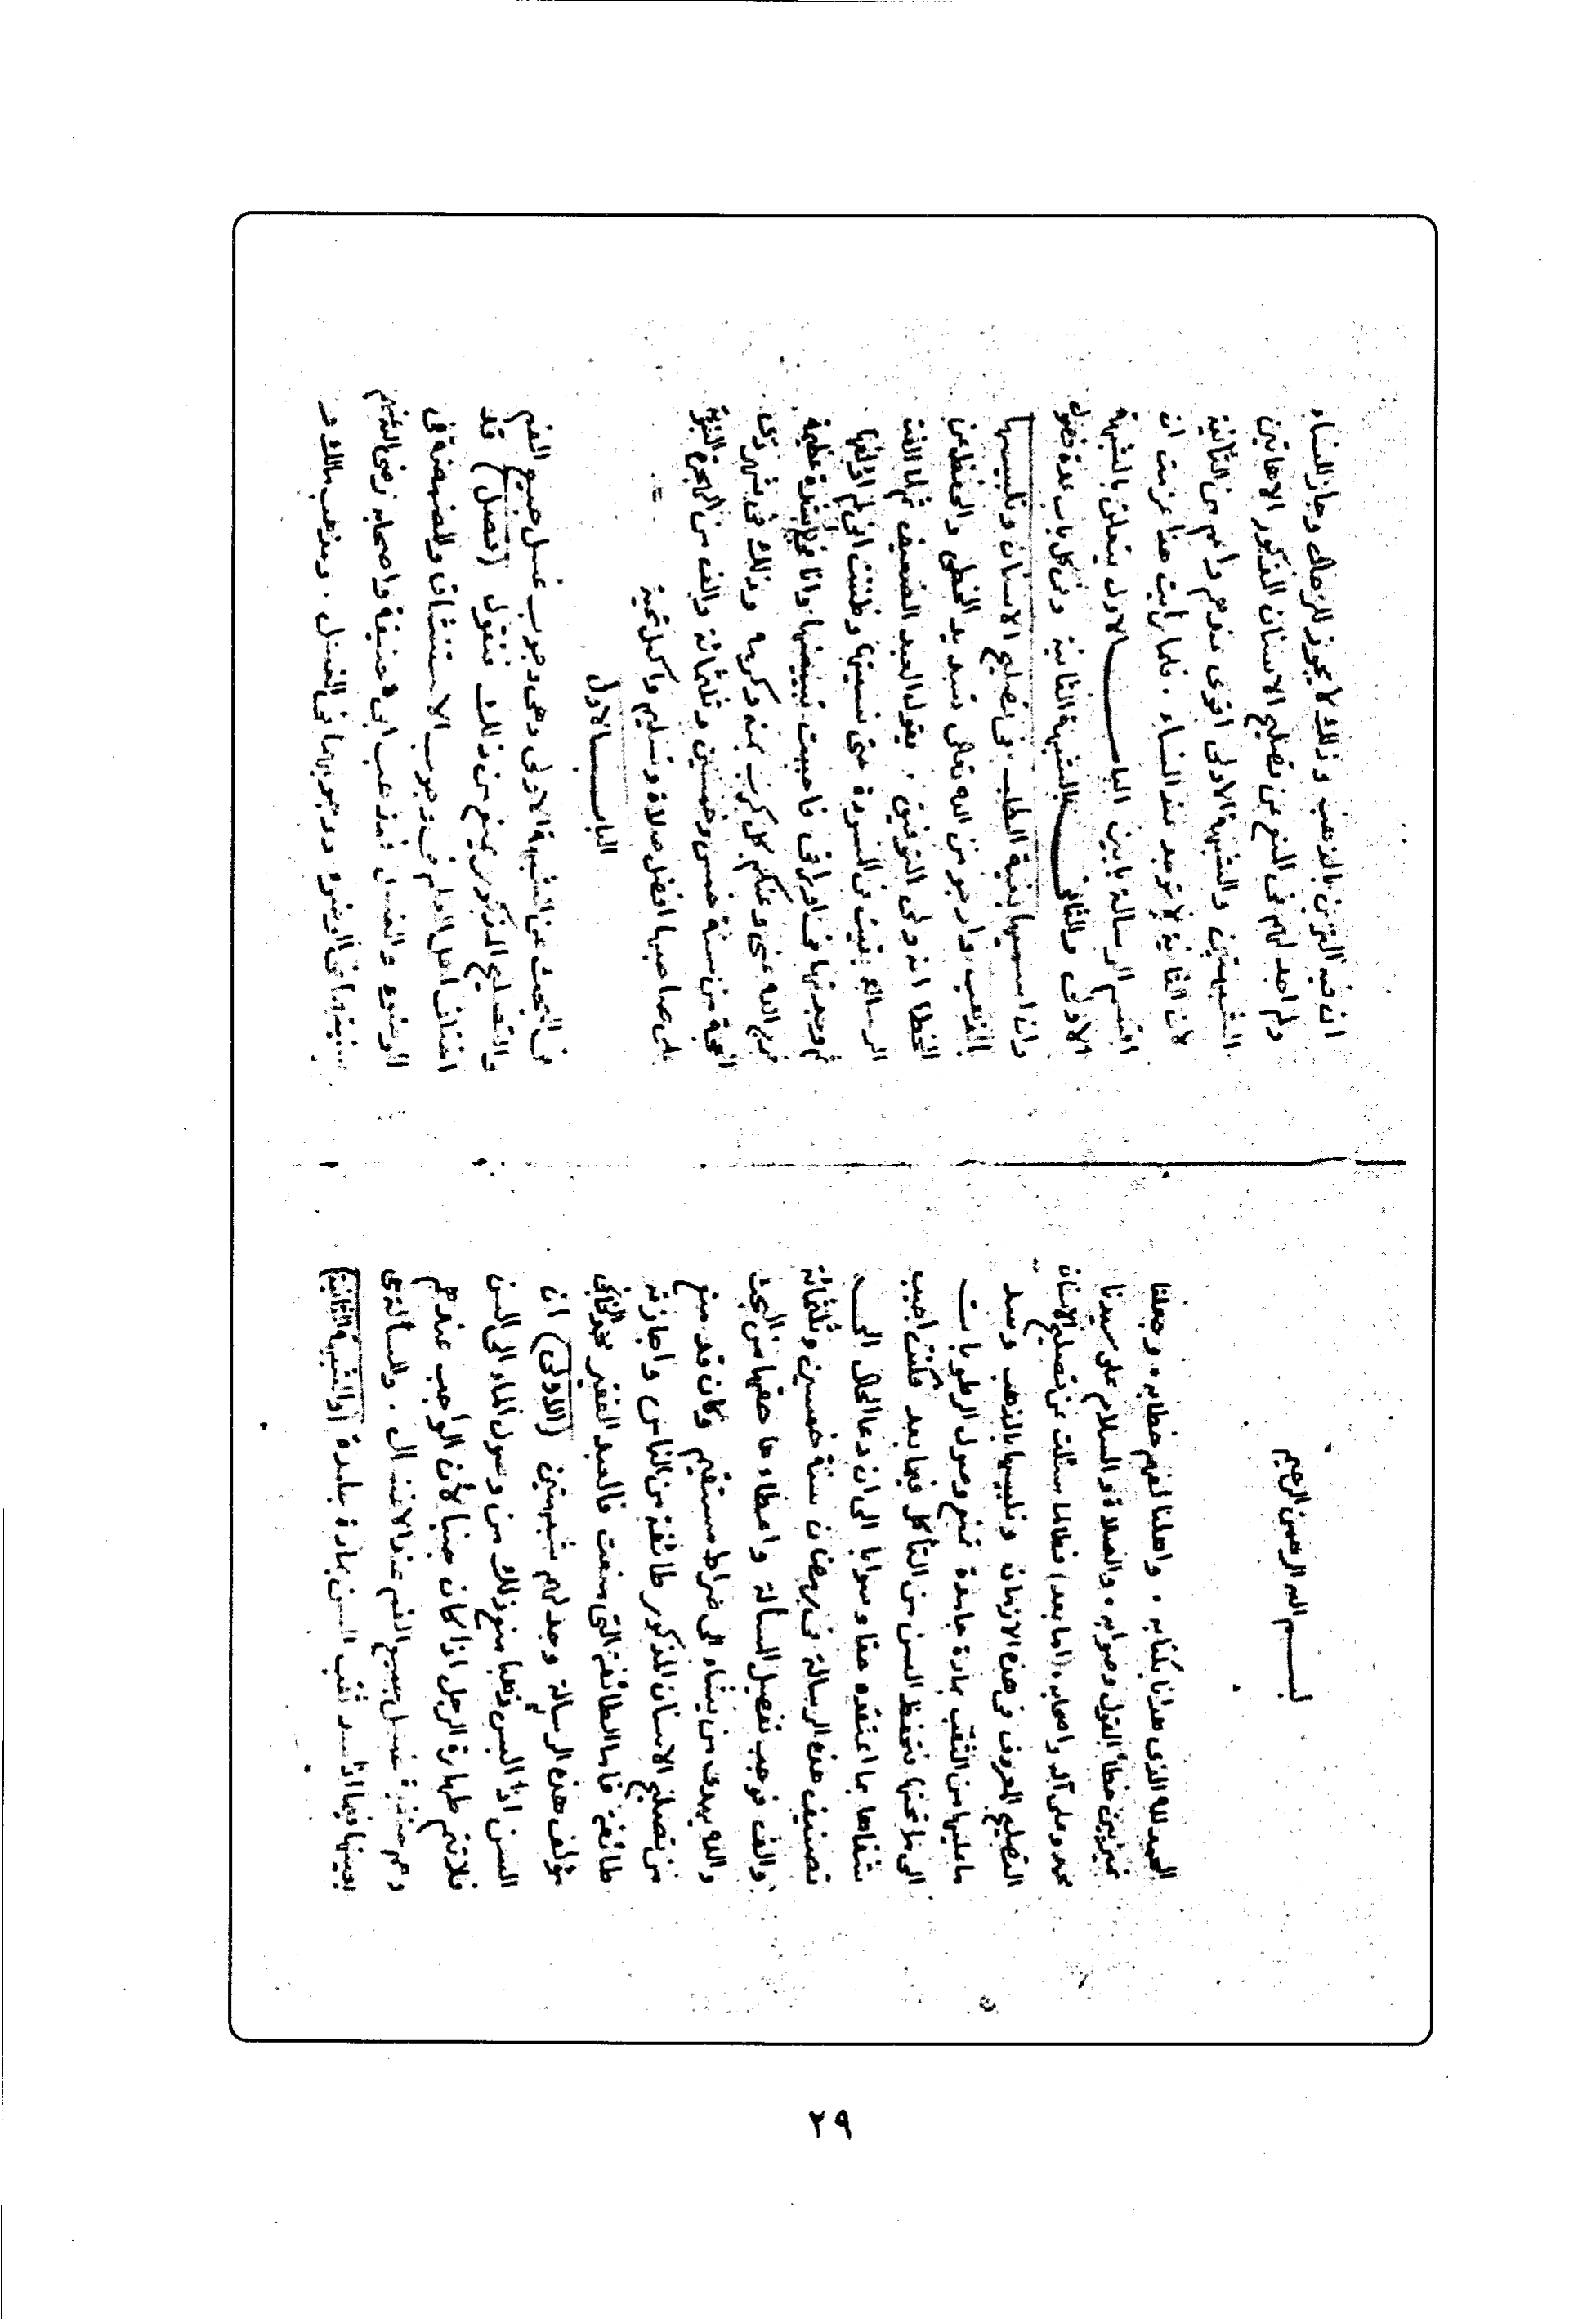 بسم الله الرحمن الرحيم
الحمد لله الذي هدانا بكتابه . واهلنا لفهم خطابه . وجعلنا
مميزين خطأ القول وصوابه . والصلاة والسلام على سيدنا
محمد وعلى آله واصحابه . (اما بعد) فطالما سئلت عن تصليح الاسنان
التصليح المعروف في هذه الازمان وتلبيسها بالذهب وسد
ما عليها من الثقب بمادة جامدة تمنع وصول الرطوبات
الى ما تحتها لتحفظ السن من التأكل فيما بعد فكنت اجيب
شفاها بما اعتقده حقا وصوابا الى ان دعا الحال الى
تصنيف هذه الرسالة في رمضان سنة خمسين وثلثمائة
والف فوجب تفصيل المسألة واعطاءها حقها من البحث
والله يهدى من يشاء الى صراط مستقيم وكان قد منع
من تصليح الاسنان المذكور طائفة من الناس واجازته
طائفة فاما الطائفة التى منعت فالعبد الفقير محمد
مؤلف هذه الرسالة وجد لهم شبهتين (الاولى) ان
السن اذا البس ذهبا منع ذلك من وصول الماء الى السن
فلا تتم طهارة الرجل اذا كان جنبا لأن الواجب عندهم
وهم حنفية غسل جميع الفم عند الاغتسال . والمسألة هي
بعينها فيما اذا سد ثقب السن بمادة جامدة (والشبهة الثانية)
ان فيه التزين بالذهب وذلك لا يجوز للرجال وجاز للنساء
ولم اجد لهم في المنع عن تصليح الاسنان المذكور الا هاتين
الشبهتين والشبهة الاولى اقوى عندهم واهم من الثانية
لأن الثانية لا توجد عند النساء . فلما رأيت هذا عزمت ان
اقسم الرسالة بابين الباب الاول يتعلق بالشبهة
الاولى والثاني بالشبهة الثانية وفي كل باب عدة فصول
وان اسميها بغية الطلاب في تصليح الاسنان وتلبيسها
بالذهب وارجو من الله تعالى تسديد الخطى والحفظ عن
الخطا انه ولى التوفيق . يقول العبد الضعيف ثم لما الفت
الرسالة بقيت في المسودة حتى نسيتها وظننت انى لم اؤلفها
ثم وجدتها في اوراقى فاحببت تبييضها وانا في شدة عظيمة
فرج الله عنى وعنكم كل كرب بمنه وكرمه وذلك في شهر ذى
الحجة من سنة خمس وخمسين وثلثمائة والف من الهجرة النبوية
على صاحبها افضل صلاة وتسليم واكمل تحية
الباب الاول
في البحث عن الشبهة الاولى وهى وجوب غسل جميع الفم
والتصليح المذكور يمنع من ذلك فنقول (فصل) قد
اختلف اهل العلم في وجوب الاستنشاق والمضمضة في
الوضوء والغسل فمذهب ابى حنيفة واصحابه رضى الله عنهم
سنيتهما في الوضوء ووجوبهما في الغسل . ومذهب مالك و
٢٩